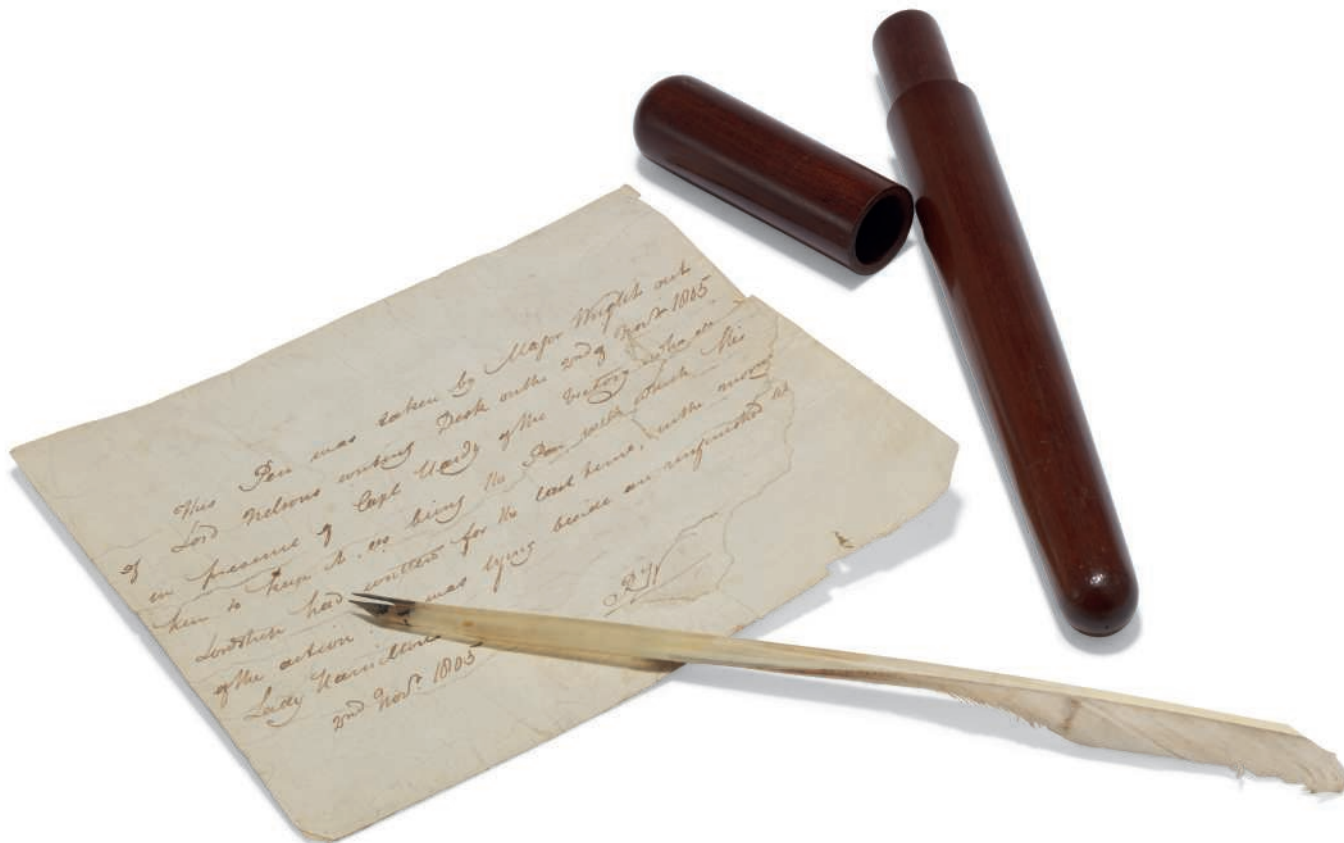 This Pen was taken by Major Wright out
of Lord Nelsons writing Desk on the 2nd of Novr 1805
in presence of Capt Hardy of the Victory who
him to keep it as being the Pen with which His
Lordship had written for the last time, in the morng
of the action was lying beside an unfinished
Lady Hamilton
2nd Novr 1805
RW